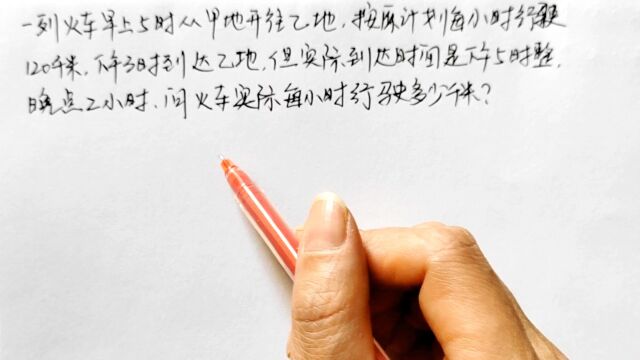 一列火车早上5时从甲地开往乙地,按原计划每小时行驶
120千米,下午3时到达乙地,但实际到达时间是下午5时整,
晚点2小时,问火车实际每小时行驶多少千米?